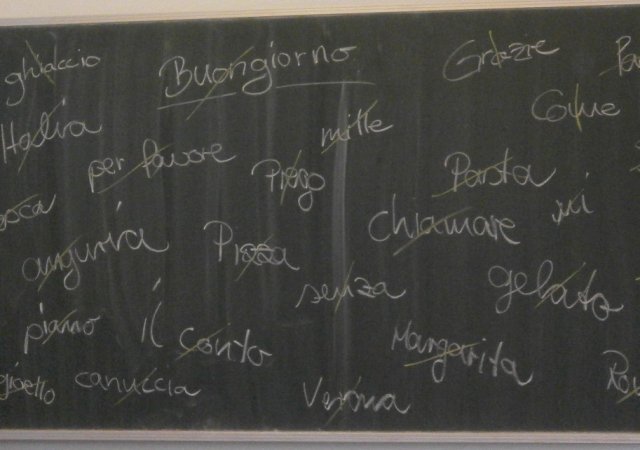 ghiaccio Buongiorno Grazie
Italia mille Come
per favore Prego Pasta mi
anguria Pizza chiamare
senza gelato
piano il conto Margarita
canuccia Verona